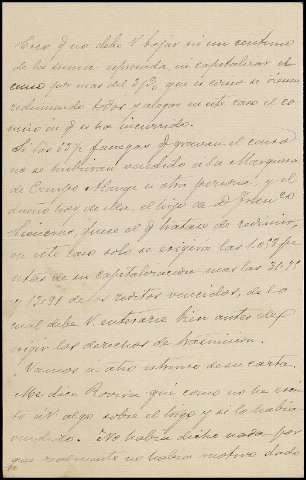 Creo q no debe V bajar ni un centimo
de la suma expresada, ni capitalizar el
censo por mas del 3 p%, que es como se vienen
redimiendo todos y alegar en este caso el co-
miso en q se ha incurrido.
Si las fanegas q gravan el censo
no se hubieran vendido a la Marquesa
de Campo Alange u otra persona, y el
dueño hoy de ellas, el hijo de Dn
fuese el q tratase de redimirlo,
en este caso solo se exigiria las
de su capitalizacion mas las
y de los reditos vencidos, de lo
cual debe V. enterarse bien antes de
exigir los derechos de trasmision.
Vamos a otro extremo de su carta.
Me dice que como no ha escri-
to a V algo sobre el trigo y si lo habia
vendido. No habia dicho nada por-
que realmente no habia motivo dado